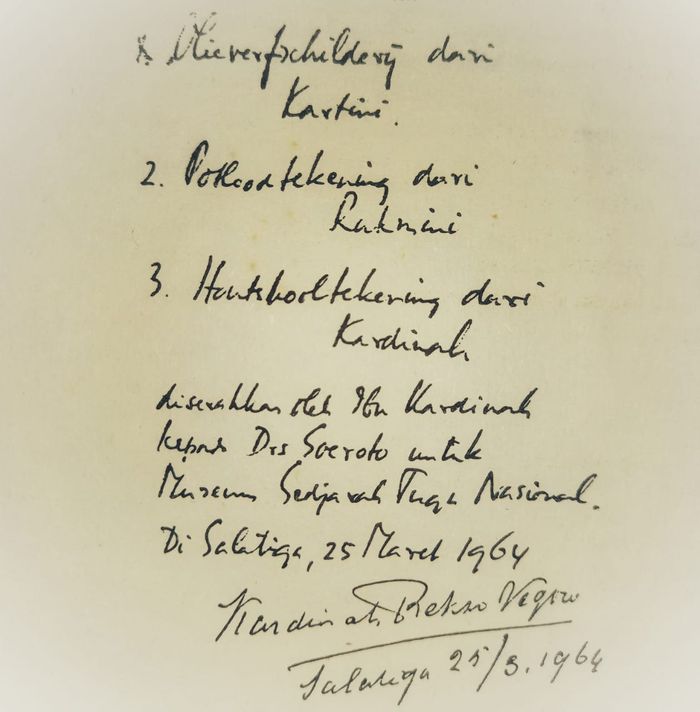 1. Olieverfschilderij dari
Kartini.
2. Potloodtekening dari
Rukmini
3. Houtskooltekening dari
Kardinah
diserahkan oleh Ibu Kardinah
kepada Drs Soeroto untuk
Museum Sedjarah Tugu Nasional.
Di Salatiga, 25 Maret 1964
Kardinah Rekso Negoro
Salatiga 25/3.1964